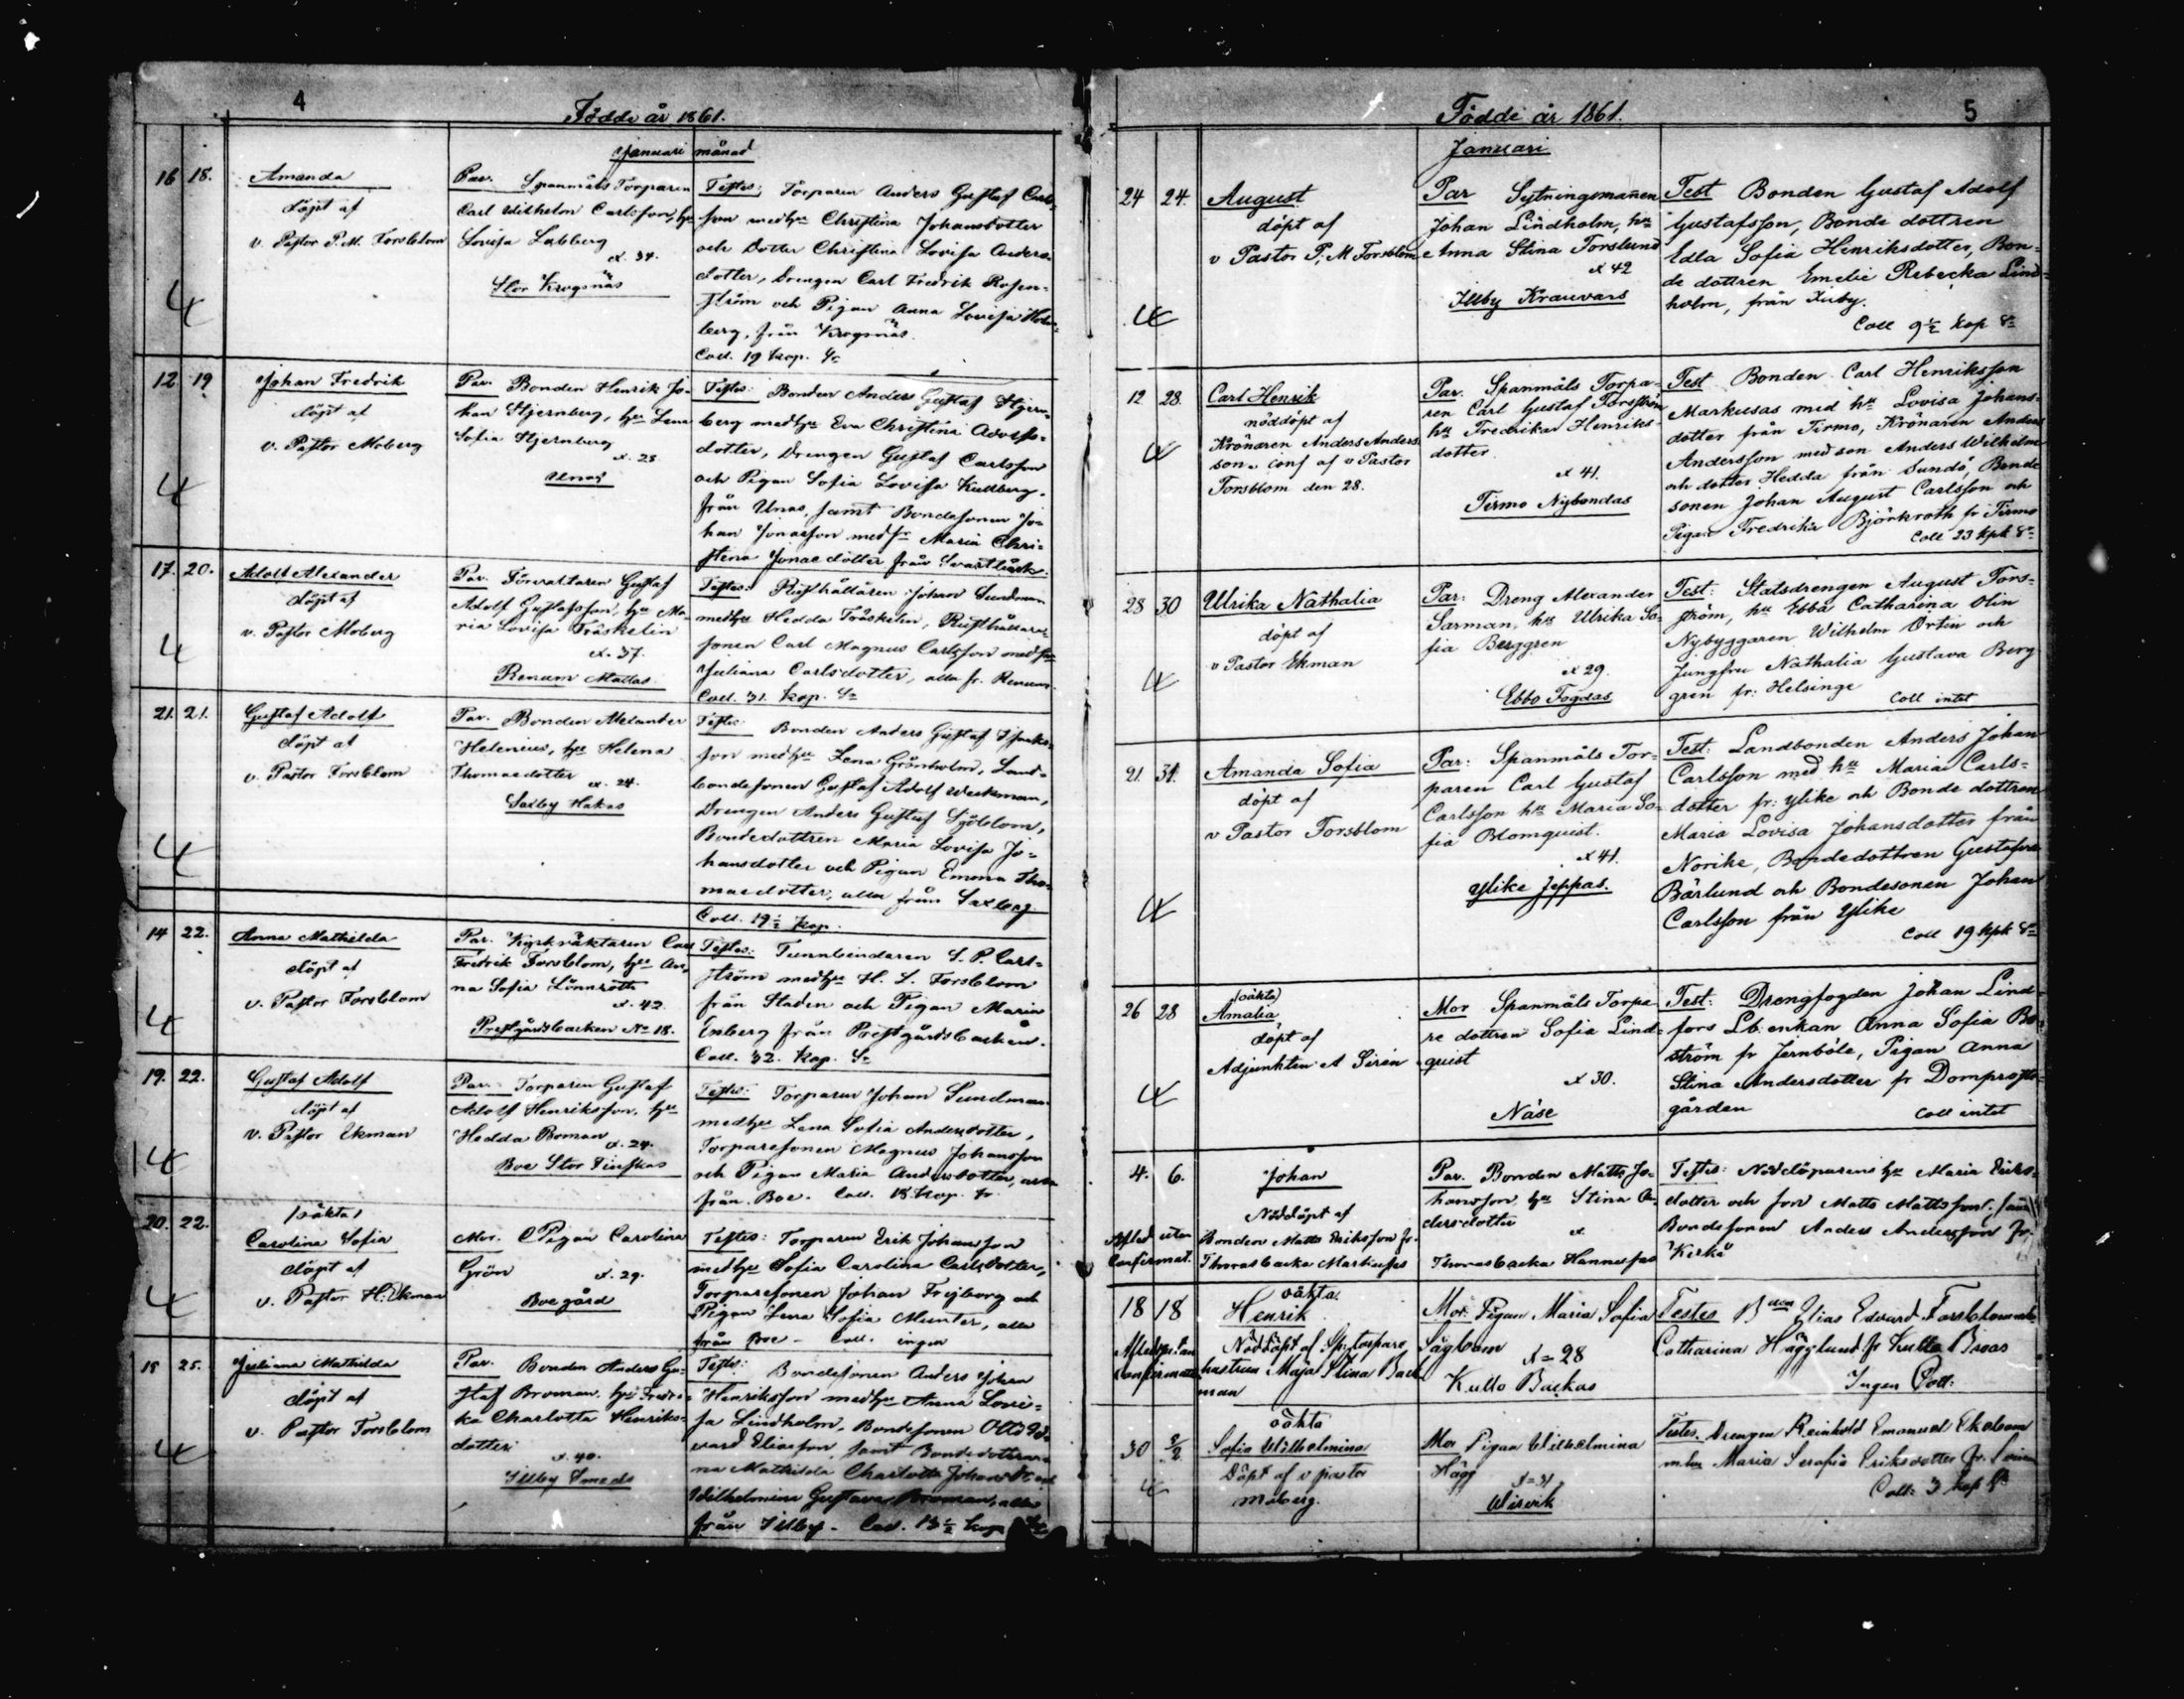 4
Födde år 1861.
Januari månad
16 18. Amanda
döpt af
v. Pastor P. M. Forsblom
Par. Spanmåls Torparen
Carl Wilhelm Carlsson, hu
Lovisa Labberg
x. 34.
Stor Krogsnäs
Testes: Torparen Anders Gustaf Carls-
son med hu Christina Johansdotter
och Dotter Christina Lovisa Anders-
dotter, Drengen Carl Fredrik Rosen-
ström och Pigan Anna Lovisa Holm-
berg, från Krogsnäs.
Coll. 19 kop. Sr
12. 19 Johan Fredrik
döpt af
v. Pastor Moberg
Par. Bonden Henrik Jo-
han Stjernberg, hu Lena
Sofia Stjernberg
x. 25.
Unas
Testes: Bonden Anders Gustaf Stjern-
berg med hu Eva Christina Adolfs-
dotter, Drengen Gustaf Carlsson
och Pigan Sofia Lovisa Kullberg.
från Unas, samt Bondesonen Jo-
han Jonasson med sr Maria Chri-
stina Jonaedotter från Svartbäck.
17. 20. Adolf Alexander
döpt af
v. Pastor Moberg
Par. Förvaltaren Gustaf
Adolf Gustafsson, hu Ma-
ria Lovisa Träskelin
x. 37.
Renum Mattas
Testes: Rusthållaren Johan Sundman
med hu Hedda Träskelin, Rusthållare-
sonen Carl Magnus Carlsson med
Juliana Carlsdotter, alla fr. Renum.
Coll. 31. kop. Sr
21. 21. Gustaf Adolf
döpt af
v. Pastor Forsblom
Par. Bonden Alexander
Helenius, hu Helena
Thomaedotter
x. 24.
Saxby Hakas
Testes: Bonden Anders Gustaf Isaks-
son med hu Lena Grönholm, Land-
bondesonen Gustaf Adolf Weckman,
Drengen Anders Gustaf Sjöblom,
Bondedottren Maria Lovisa Jo-
hansdotter och Pigan Emma Tho-
maedotter, alla från Saxby
Coll. 19½ kop.
14 22. Anna Mathilda
döpt af
v. Pastor Forsblom
Par. Kyrkväktaren Carl
Fredrik Forsblom, hu An-
na Sofia Lönnroth
x. 42.
Prestgårdsbacken No 18.
Testes: Tunnbindaren S. P. Carl-
ström med hu H. L. Forsblom
från Staden och Pigan Maria
Enberg från Prestgårdsbacken.
Coll. 32. kop. Sr
19. 22. Gustaf Adolf
döpt af
v. Pastor Ekman
Par. Torparen Gustaf
Adolf Henriksson, hu
Hedda Boman
x. 24.
Boe Stor Finskas
Testes: Torparen Johan Sundman
med hu Lena Sofia Andersdotter,
Torparesonen Magnus Johansson
och Pigan Maria Andersdotter, alla
från Boe. Coll. 18 kop. Sr
20. 22. (oäkta)
Carolina Sofia
döpt af
v. Pastor H. Ekman
Mor. Pigan Carolina
Grön
x. 29.
Boe gård
Testes: Torparen Erik Johansson
med hu Sofia Carolina Carlsdotter,
Torparesonen Johan Frejborg och
Pigan Lena Sofia Munter, alla
från Boe - Coll. ingen
15 25. Juliana Mathilda
döpt af
v. Pastor Forsblom
Par. Bonden Anders Gu-
staf Broman, hu Fredri-
ka Charlotta Henriks-
dotter
x. 40.
Illby Smeds
Testes: Bondesonen Anders Johan
Henriksson med hu Anna Lovi-
sa Lindholm, Bondesonen Otto Ed-
vard Eliasson, samt Bondedottrar-
na Mathilda Charlotta Johansdr och
Wilhelmina Gustava Broman, alla
från Illby. Coll. 13½ kop
5
Födde år 1861.
Januari
24 24. August
döpt af
v Pastor P. M Forsblom
Par Sytningsmannen
Johan Lindholm, hu
Anna Stina Forslund
x 42
Illby Krauvars
Test Bonden Gustaf Adolf
Gustafsson, Bonde dottren
Edla Sofia Henriksdotter, Bon-
de dottren Emelie Rebecka Lind-
holm, från Illby.
Coll 9½ kop Sr
12 28. Carl Henrik
nöddöpt af
Krönaren Anders Anders-
son. conf af v Pastor
Forsblom den 28.
Par. Spanmåls Torpa-
ren Carl Gustaf Forsström
hu Fredrika Henriks-
dotter
x 41.
Tirmo Nybondas
Test Bonden Carl Henriksson
Markusas med hu Lovisa Johans-
dotter från Tirmo, Krönaren Anders
Andersson med son Anders Wilhelm
och dotter Hedda från Sundö, Bonde
sonen Johan August Carlsson och
Pigan Fredrika Björkroth fr Tirmo
Coll 23 kpk Sr
28 30 Ulrika Nathalia
döpt af
v Pastor Ekman
Par: Dreng Alexander
Sarman, hu Ulrika So-
fia Berggren
x 29.
Ebbo Fogdas
Test: Statsdrengen August Fors-
ström, hu Ebba Catharina Olin
Nybyggaren Wilhelm Ortin och
Jungfru Nathalia Gustava Berg
gren fr: Helsinge
Coll intet
21. 31. Amanda Sofia
döpt af
v Pastor Forsblom
Par: Spanmåls Tor-
paren Carl Gustaf
Carlsson hu Maria So-
fia Blomquist.
x 41.
Ylike Jeppas.
Test: Landbonden Anders Johan
Carlsson med hu Maria Carls-
dotter fr: Ylike och Bonde dottren
Maria Lovisa Johansdotter från
Norike, Bondedottren Gustafva
Bärlund och Bondesonen Johan
Carlsson från Ylike
Coll 19 kpk Sr
26 28 (oäkta)
Amalia
döpt af
Adjunkten A Sirén
Mor Spanmåls Torpa
re dottren Sofia Lind-
quist
x 30.
Näse
Test: Drengfogden Johan Lind-
fors Lb: enkan Anna Sofia Bo-
ström fr Jernböle, Pigan Anna
Stina Andersdotter fr Domprosts-
gården
Coll intet
4. 6. Johan
Nöddöpt af
Bonden Matts Eriksson fr.
Thorasbacka Martinsas
Afled utan
Confirmat.
Par. Bonden Matts Jo-
hansson, hu Stina An-
dersdotter
x.
Thorasbacka Hannusas
Testes: Nöddöparens hu Maria Eriks-
dotter och son Matts Mattsson, samt
Bondesonen Anders Andersson fr.
Kerkå
18 18 oäkta.
Henrik
Nöddöpt af Sp. torpare
hustrun Maja Stina Back
man
Mor. Pigan Maria Sofia
Sågbom
x = 28
Kullo Backas
Testes Elias Edvard Forsblom
Catharina Hägglund fr Kullo Broas
Ingen Coll:
oäkta
30 2/2 Sofia Wilhelmina
Döpt af v pastor
Moberg.
Mor Pigan Wilhelmina
Hägg
x = 31
Wirvik
Testes. Drengen Reinhold Emanuel Ekebom
Maria Serafia Eriksdotter fr.
Coll: 3 kop Sr